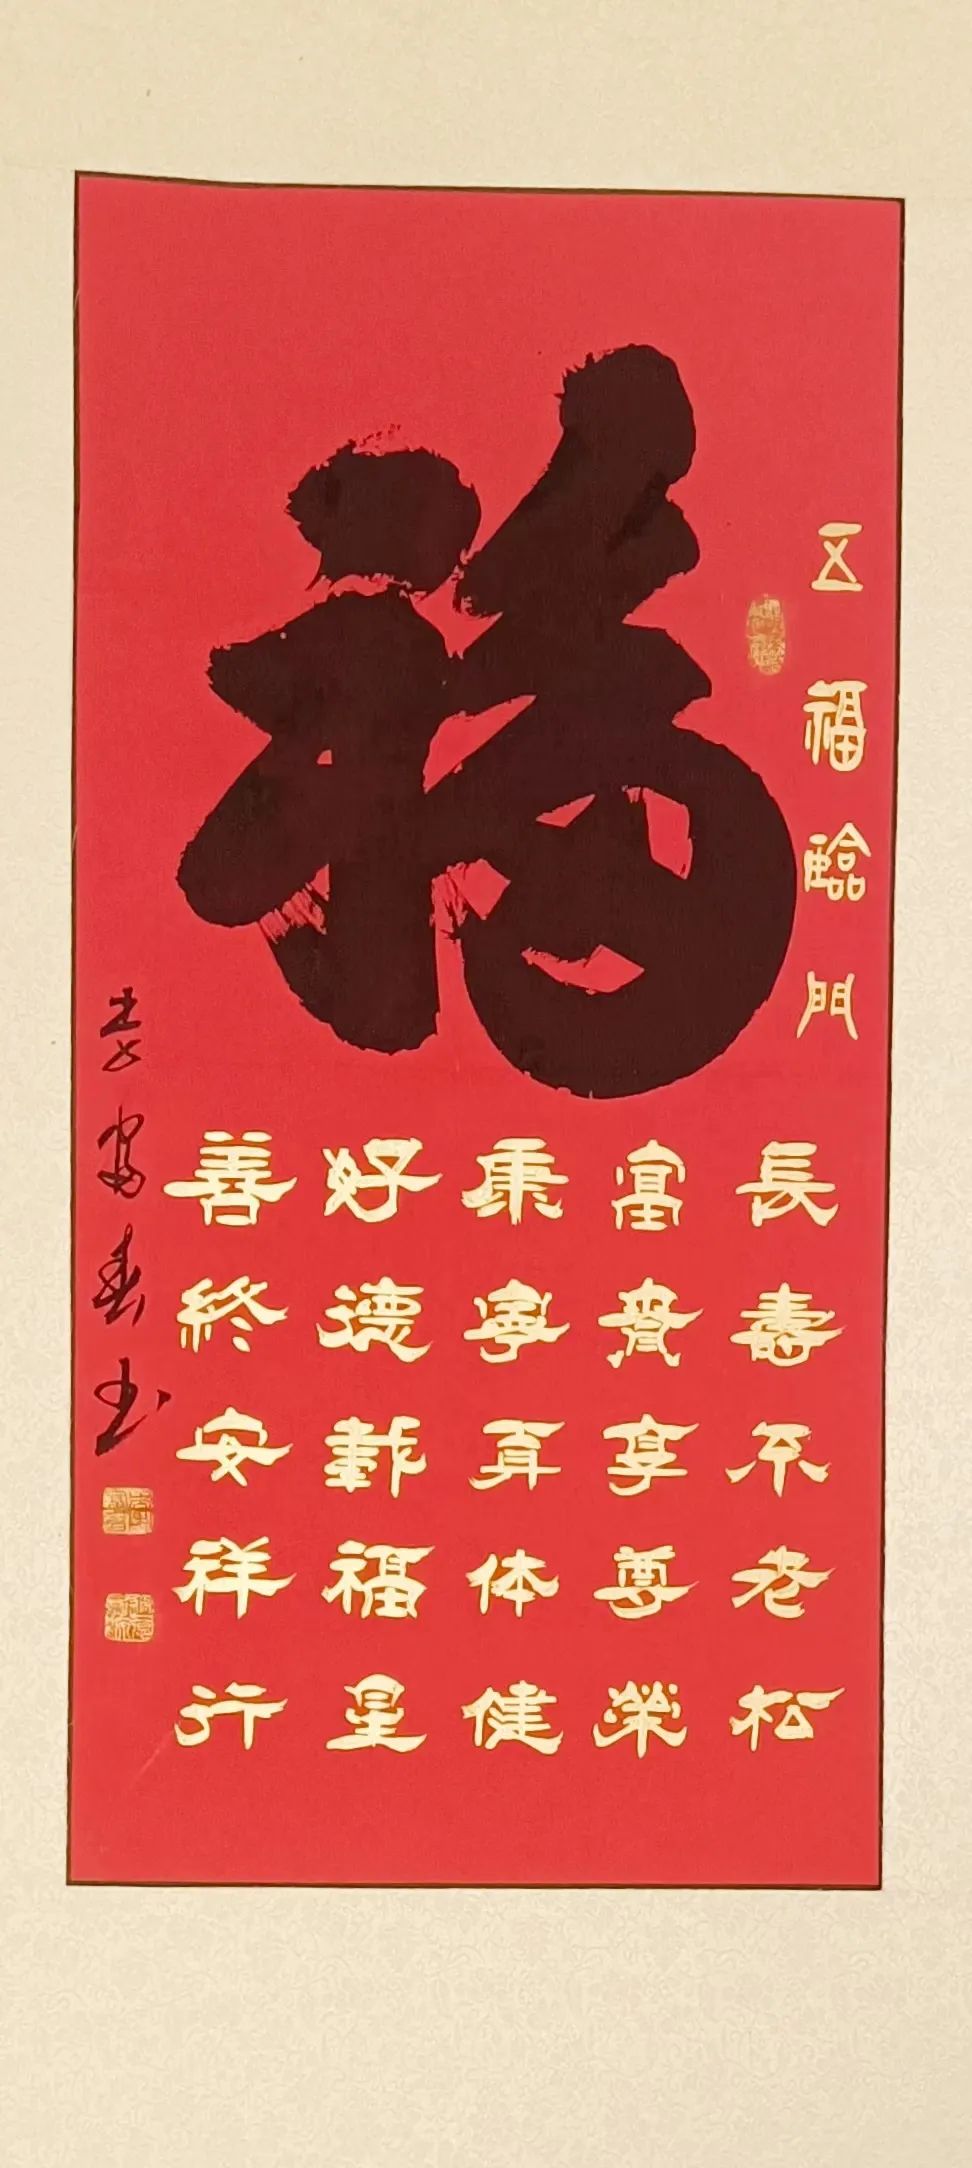 五福臨門
福
長壽不老松
富貴享尊榮
康寧真体健
好德載福星
善終安祥行
李富春書